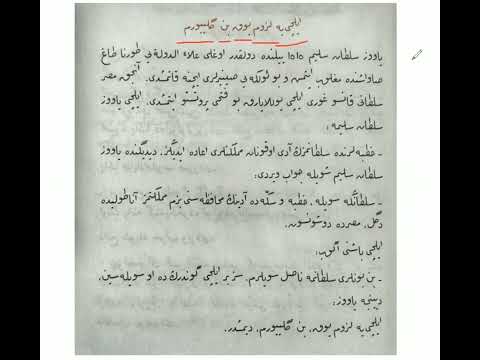 ایلچی‌یه لزوم یوق بن گلییورم
یاووز سلطان سلیم ۱۵۱۵ ییلنده دولقدر اوغلی علاء الدوله‌یی طورنا طاغ
صاواشنده مغلوب ایتمش و بو ئولکه‌یی صینیرلری ایچنه قاتمشدی. آنجق مصر
سلطانی قانسو غوری ایلچی یوللایارق بو فتحی پروتستو ایتمشدی. ایلچی یاووز
سلطان سلیمه:
ـ خطبه‌لرنده سلطانمزڭ آدی اوقونان مملکتلری اعاده ایدیڭز. دیدیگنده یاووز
سلطان سلیم شویله جواب ویردی:
ـ سلطانڭه سویله، خطبه و سکه‌ده آدینڭ محافظه‌سنی بزم مملکتمز آناطولیده
دگل، مصرده دوشونسون.
ایلچی باشنی اگوب:
ـ بن بونلری سلطانمه ناصل سویلرم. سز بر ایلچی گوندرڭ ده او سویله‌سین،
دیینجه یاووز:
ایلچی‌یه لزوم یوق، بن گلییورم، دیمشدر.